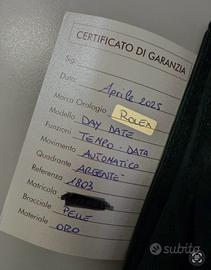 CERTIFICATO DI GARANZIA
Sig.
Data: Aprile 2025
Marca Orologio ROLEX
Modello DAY DATE
Funzioni TEMPO - DATA
Movimento AUTOMATICO
Quadrante ARGENTÉ
Referenza 1803
Matricola
Bracciale PELLE
Materiale ORO
subito